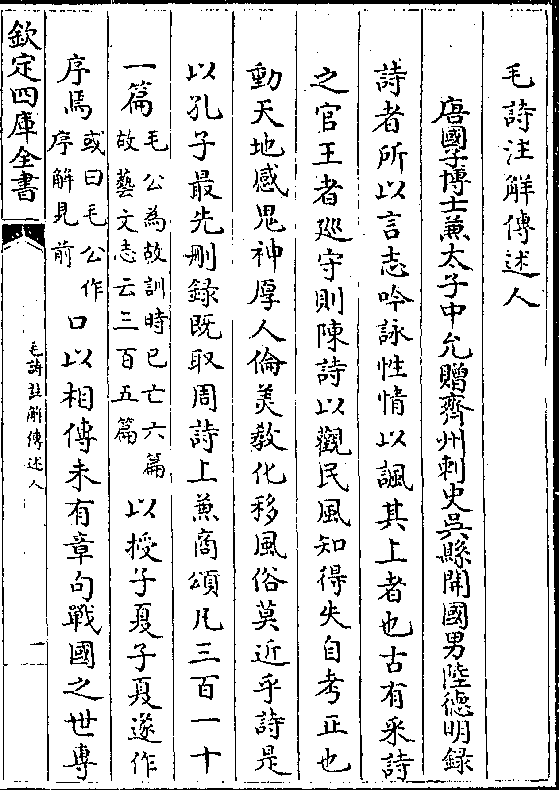 毛詩注解傳述人
唐國子博士兼太子中允贈齊州刺史吳縣開國男陸德明錄
詩者所以言志吟詠性情以諷其上者也古有采詩
之官王者廵守則陳詩以觀民風知得失自考正也
動天地感鬼神厚人倫美教化移風俗莫近乎詩是
以孔子最先刪錄既取周詩上兼商頌凡三百一十
一篇毛公為故訓時已亡六篇故藝文志云三百五篇以授子夏子夏遂作
序焉或曰毛公作序解見前口以相傳未有章句戰國之世專
欽定四庫全書
毛詩註解傳述人
一